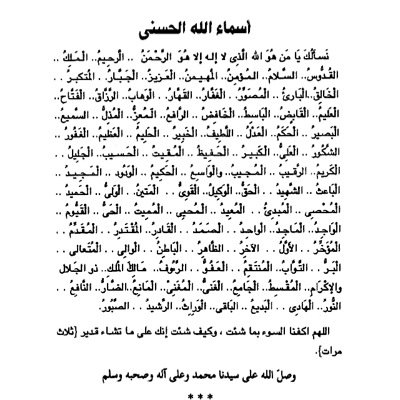 أسماء الله الحسنى
نسألك يا من هو الله الذي لا إله إلا هو الرَّحْمَنُ .. الرَّحيمُ.. الْمَلكُ ..
القُدُّوسُ.. السَّلامُ.. المؤمنُ.. المهيمنُ.. العَزيزُ.. الجَبَّارُ.. المتكبرُ ..
الخَالقُ.. البَارئُ.. المُصَوِّرُ.. الغَفَّارُ.. القَهَّارُ.. الوَهابُ.. الرَّزَّاقُ.. الفَتَّاحُ..
العَليمُ.. القَابضُ.. البَاسطُ.. الخَافضُ.. الرَّافعُ.. المُعزُّ.. المُذلُّ.. السَّميعُ..
البَصيرُ.. الحَكَمُ.. العَدْلُ.. اللَّطيفُ.. الخَبيرُ.. الحَليمُ.. العَظيمُ.. الغَفُورُ ..
الشَّكُورُ.. العَليُّ.. الكَبيرُ.. الحَفيظُ.. المُقيتُ.. الحَسيبُ.. الجَليلُ ..
الكَريمُ.. الرَّقيبُ.. المُجيبُ.. والوَاسعُ.. الحَكيمُ.. الوَدُودُ.. المَجيدُ ..
البَاعثُ.. الشَّهيدُ .. الحَقُّ.. الوَكيلُ.. القَويُّ .. المَتينُ.. الوَليُّ .. الحَميدُ ..
المُحْصي .. المُبدئُ .. المُعيدُ .. المُحْيي .. المُميتُ .. الحَيُّ .. القَيُّومُ ..
الوَاجدُ.. المَاجدُ.. الواحدُ.. الصَّمَدُ .. القَادرُ.. المُقْتَدرُ.. المُقَدِّمُ ..
المُؤَخِّرُ .. الأوَّلُ .. الآخرُ .. الظَّاهرُ .. البَاطنُ .. الوالي .. المُتعالى ..
البَرُّ .. التَّوَّابُ .. المُنتَقمُ .. العَفُوُّ .. الرَّءُوفُ.. مَالكُ المُلك.. ذو الجَلال
والإكْرام.. المُقْسطُ.. الجَامعُ.. الغَنيُّ.. المُغْنيُ.. المَانعُ.. الضَّارُّ.. النَّافعُ ..
النُّورُ.. الهَادي.. البَديعُ.. البَاقي.. الوَرِاثُ.. الرَّشيدُ.. الصَّبُورُ.
اللهم اكفنا السوء بما شئت ، وكيف شئت إنك على ما تشاء قدير {ثلاث
مرات}.
وصلّ الله على سيدنا محمد وعلى آله وصحبه وسلم
* * *